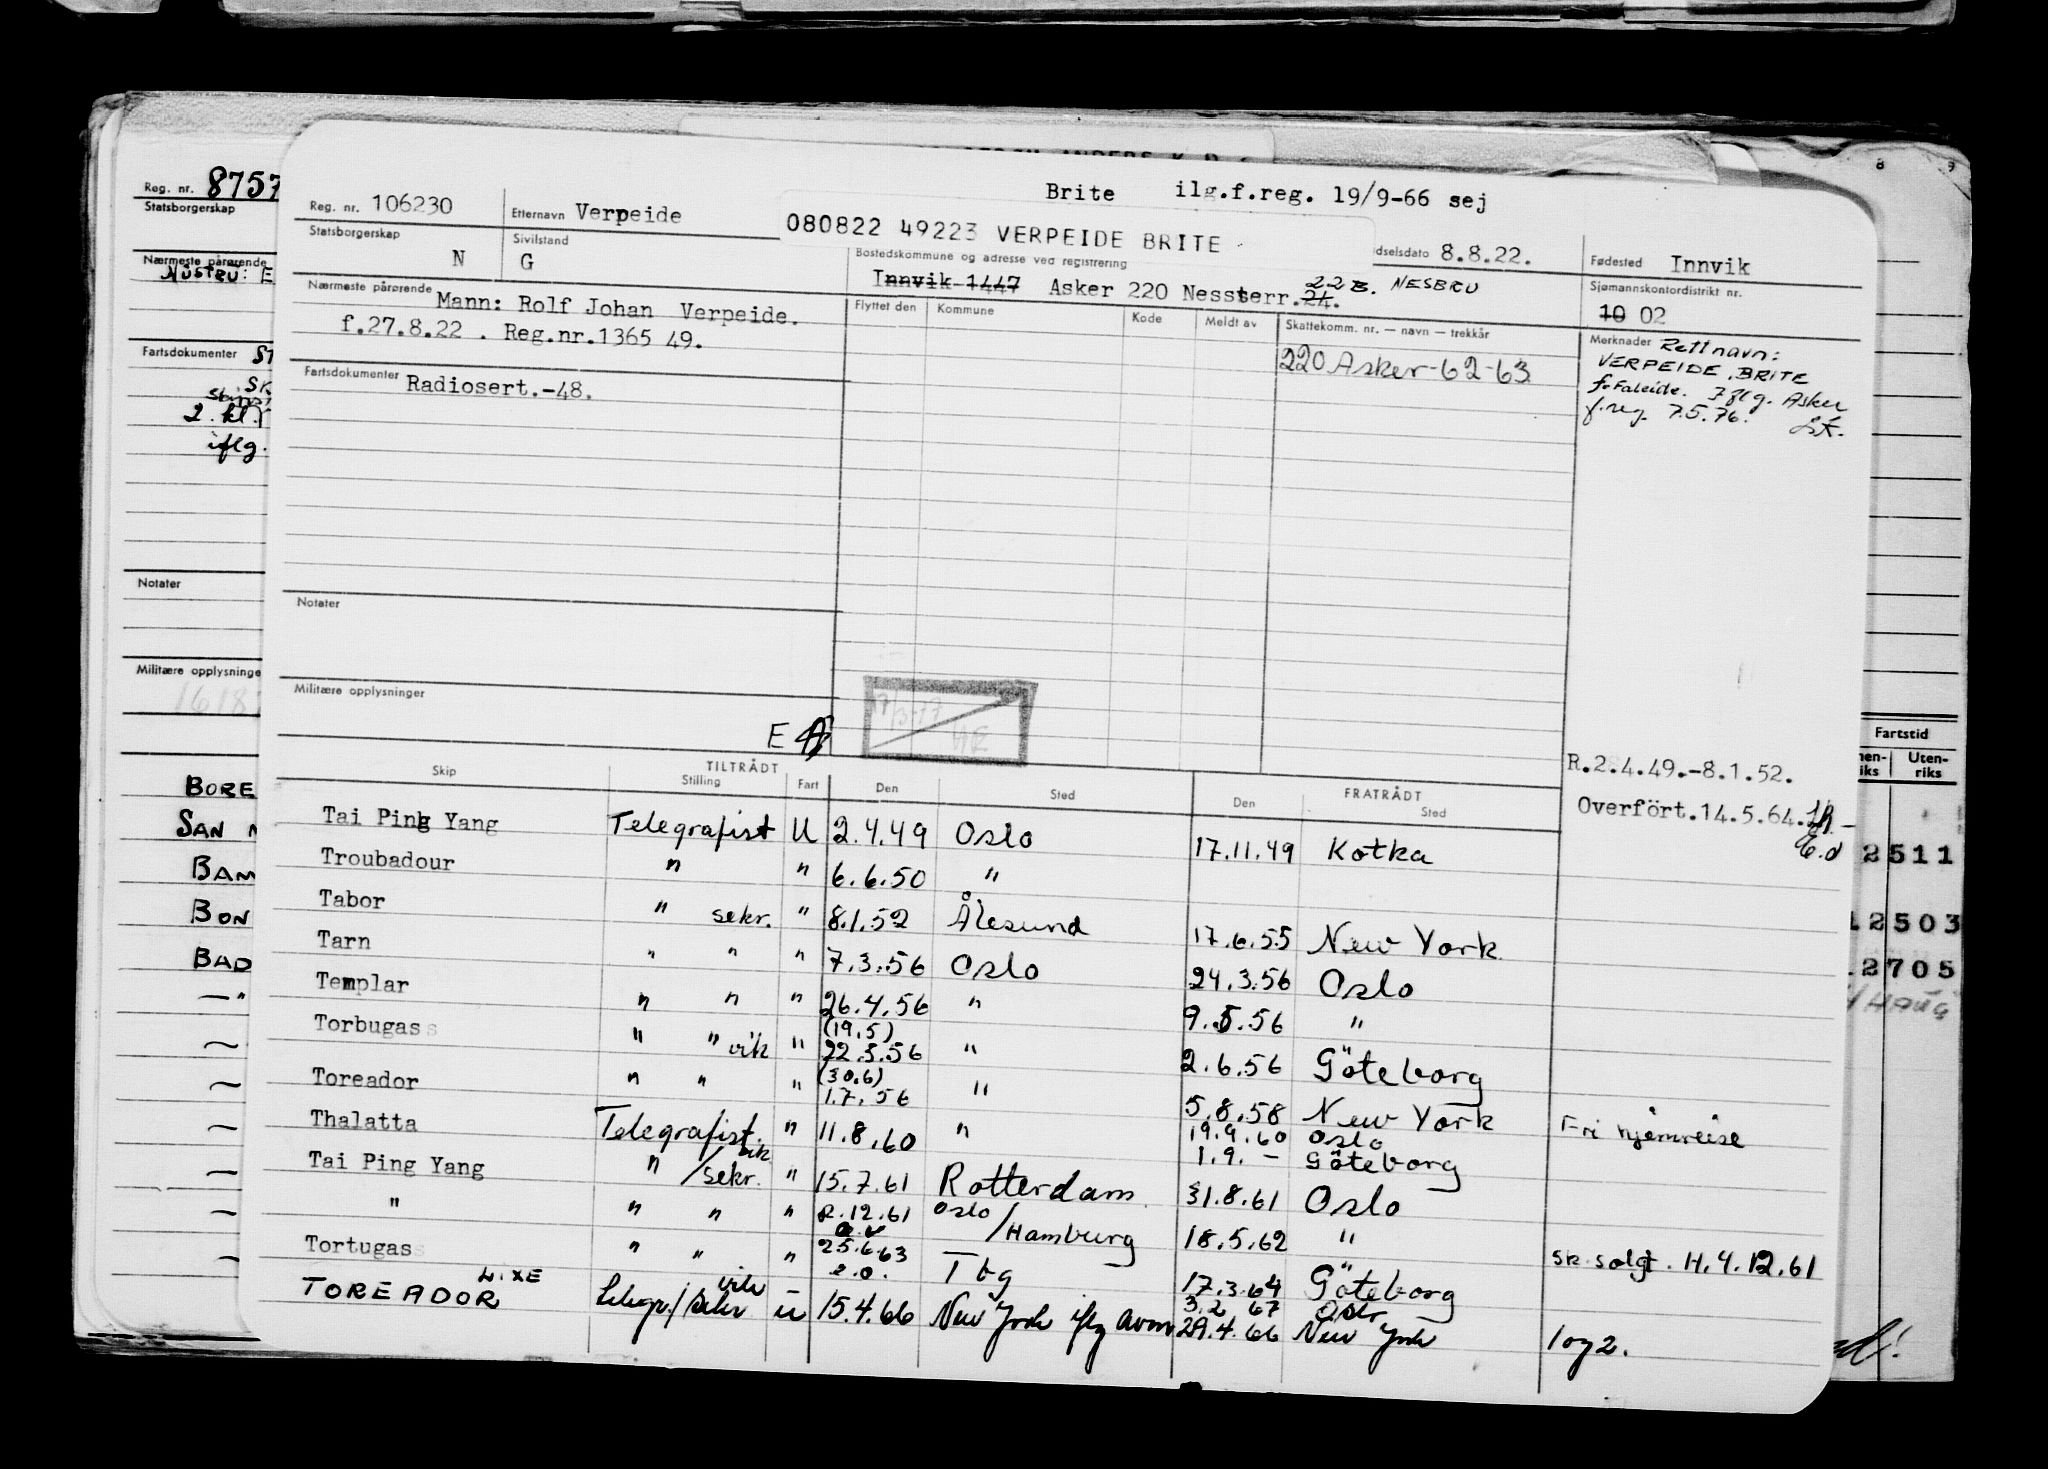 Reg. nr. 8757
Statsborgerskap
Nærmeste pårørende
Fartsdokumenter
2. kl.
iflg.
Notater
Militære opplysninger
BORE
SAN
BAM
BON
BAD
Brite ilg.f.reg. 19/9-66 sej
Reg. nr. 106230 Etternavn Verpeide
080822 49223 VERPEIDE BRITE
dselsdato 8.8.22. Fødested Innvik
Statsborgerskap N Sivilstand G
Bostedskommune og adresse ved registrering
Innvik 1447 Asker 220 Nessterr. 24. 22B. NESBRU
Sjømannskontordistrikt nr. 10 02
Nærmeste pårørende Mann: Rolf Johan Verpeide.
f.27.8.22 . Reg.nr.1365 49.
Flyttet den Kommune Kode Meldt av Skattekomm. nr. — navn — trekkår
220 Asker-62-63
Merknader Rett navn:
VERPEIDE, BRITE
f. Faleide. Iflg. Asker
f.reg. 7.5.76.
Fartsdokumenter Radiosert.-48.
Notater
Militære opplysninger
E
R.2.4.49.-8.1.52.
Overfört.14.5.64.
Skip TILTRÅDT Stilling Fart Den Sted FRATRÅDT Den Sted
Tai Ping Yang Telegrafist U 2.4.49 Oslo 17.11.49 Kotka
Troubadour " " 6.6.50 "
Tabor " sekr. " 8.1.52 Ålesund 17.6.55 New York
Tarn " " " 7.3.56 Oslo 24.3.56 Oslo
Templar " " " 26.4.56 " 9.5.56 "
Torbugas " " vik " (19.5) 22.5.56 " 2.6.56 Göteborg
Toreador " " " (30.6) 1.7.56 " 5.8.58 New York Fri hjemreise
Thalatta Telegrafist. vik " 11.8.60 " 19.9.60 Oslo 1.9. - Göteborg
Tai Ping Yang " /sekr. " 15.7.61 Rotterdam 31.8.61 Oslo
" " " " 2.12.61 Oslo/Hamburg 18.5.62 " sk. solgt. H.4.12.61
Tortugas " " " 25.6.63 Tbg 17.3.64 Göteborg
TOREADOR telegr./sekr vik u 15.4.66 New York iflg 29.4.66 New York
3.2 67 Oslo
1 og 2.
8 9
Fartstid
Uten-
riks
2511
12503
2705